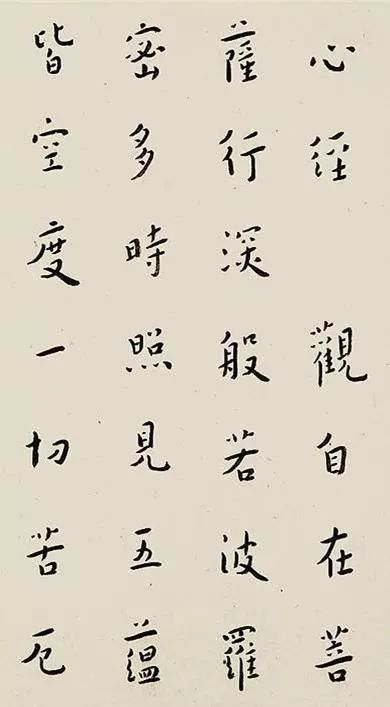 心經 觀自在菩
薩行深般若波羅
蜜多時照見五蘊
皆空度一切苦厄